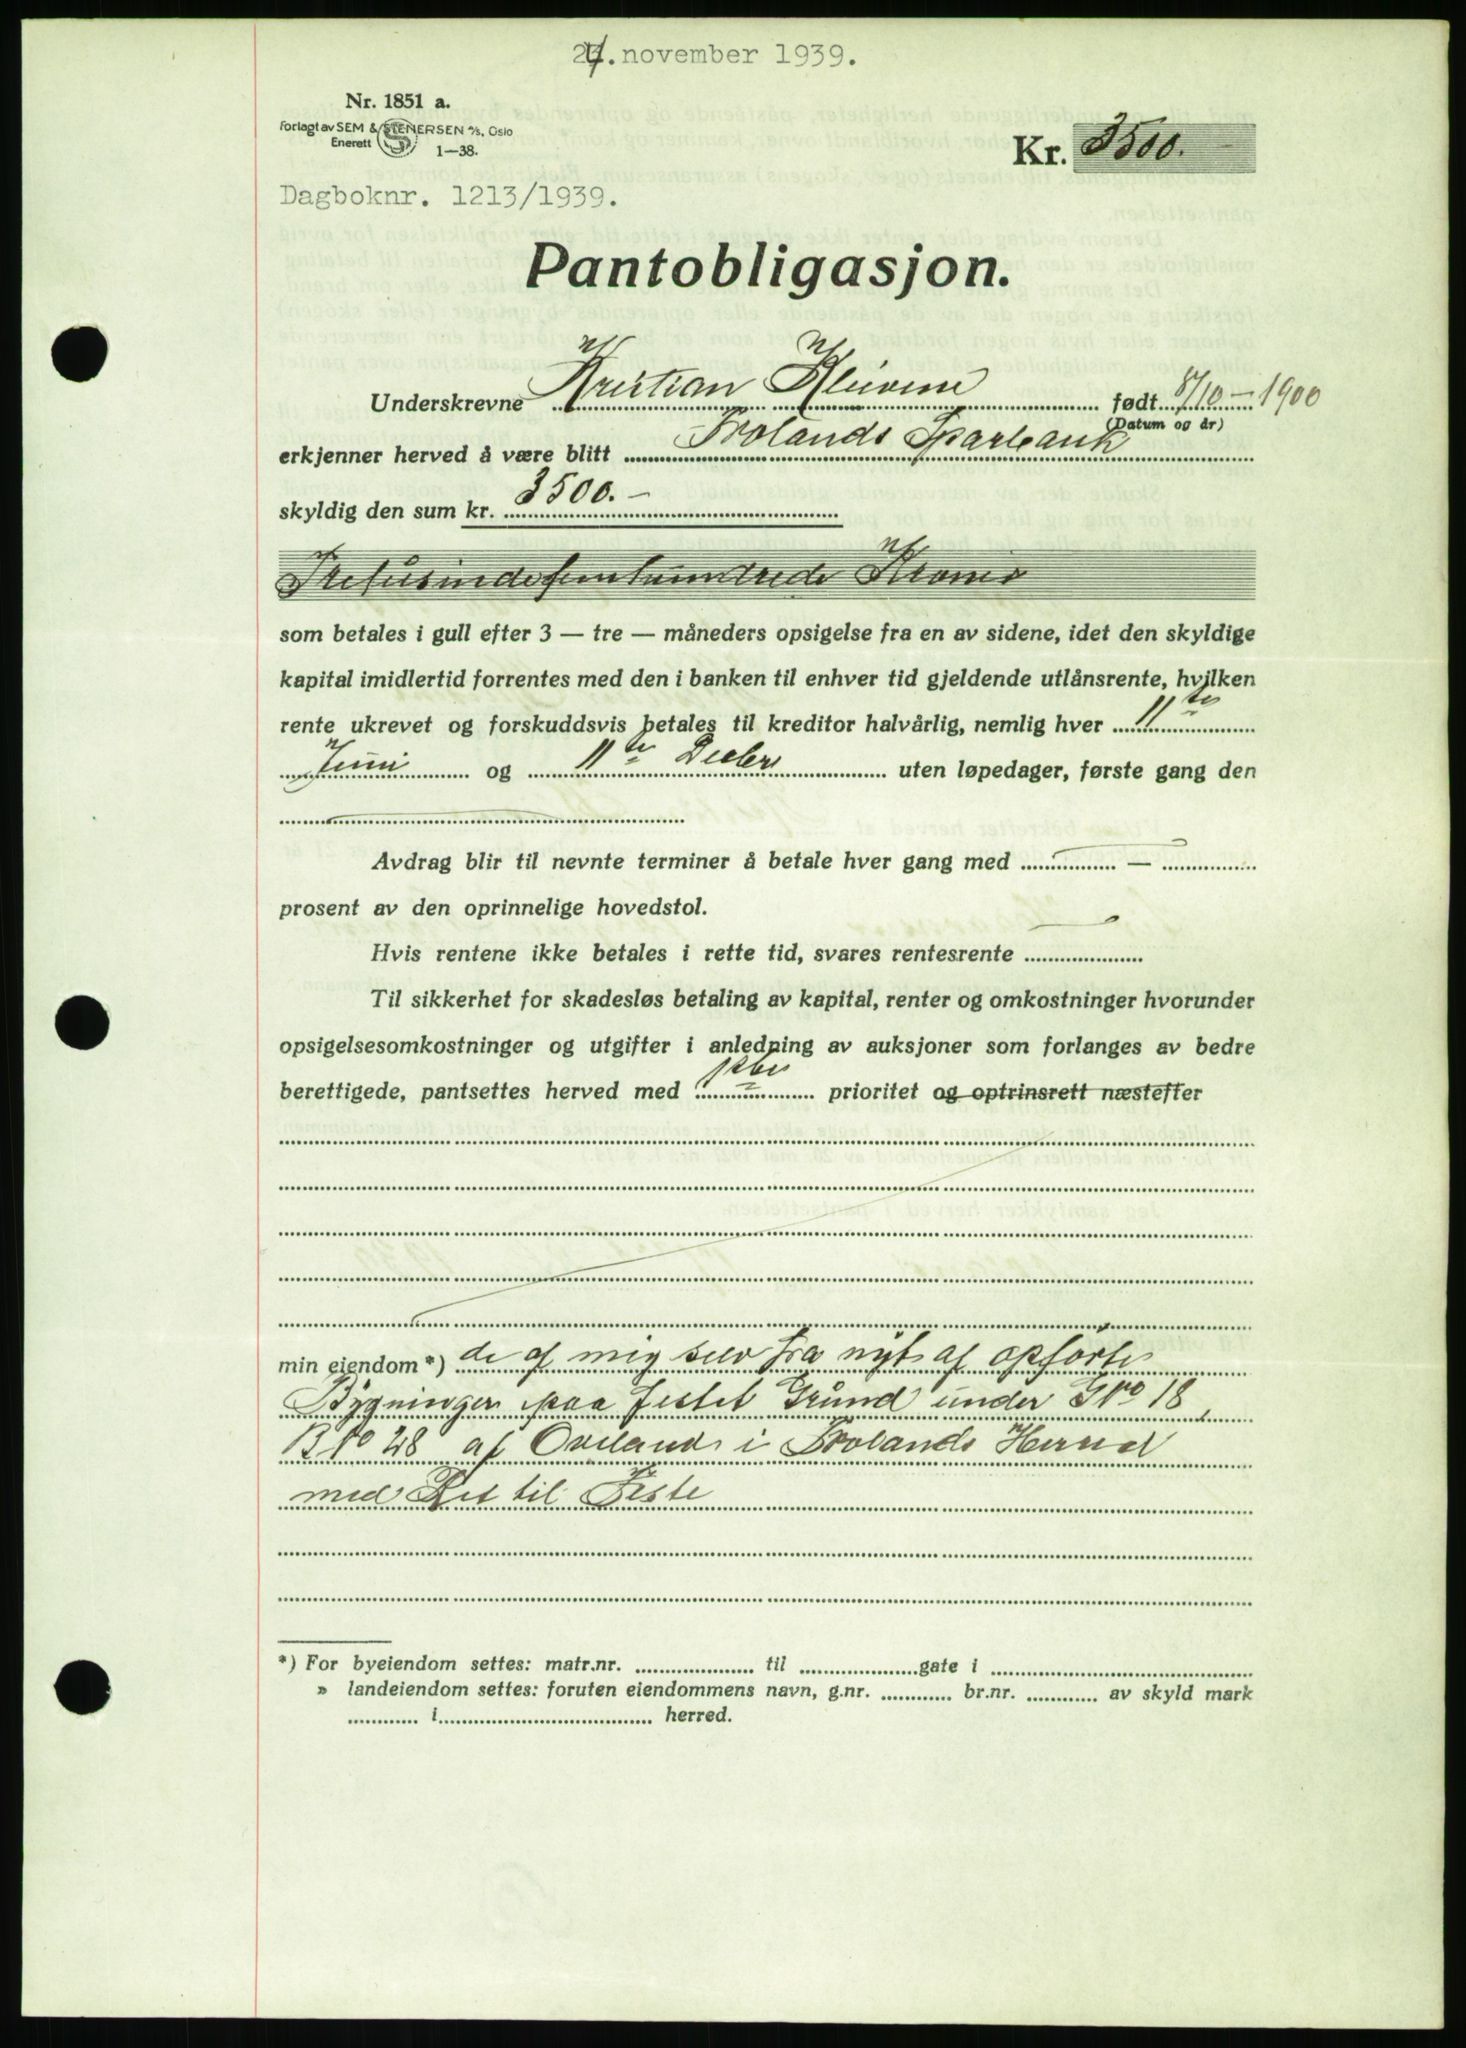 24. november 1939.
Nr. 1851 a.
Forlagt av SEM & STENERSEN A/S, Oslo
Enerett 1—38.
Kr. 3500.—
Dagboknr. 1213/1939.
Pantobligasjon.
Underskrevne Kristian Kleivene født 8/10 — 1900
(Datum og år)
erkjenner herved å være blitt Frolands Sparbank
skyldig den sum kr. 3500.—
Tretusindefemhundrede Kroner
som betales i gull efter 3 — tre — måneders opsigelse fra en av sidene, idet den skyldige
kapital imidlertid forrentes med den i banken til enhver tid gjeldende utlånsrente, hvilken
rente ukrevet og forskuddsvis betales til kreditor halvårlig, nemlig hver 11te
Juni og 11te Decbr uten løpedager, første gang den
Avdrag blir til nevnte terminer å betale hver gang med —
prosent av den oprinnelige hovedstol.
Hvis rentene ikke betales i rette tid, svares rentesrente
Til sikkerhet for skadesløs betaling av kapital, renter og omkostninger hvorunder
opsigelsesomkostninger og utgifter i anledning av auksjoner som forlanges av bedre
berettigede, pantsettes herved med 1ste prioritet og optrinsrett næstefter
min eiendom *) de af mig selv fra nyt af opførte
Bygninger paa festet Grund under GNo 18,
BNo 28 af Oveland i Frolands Herred
med Ret til Feste
*) For byeiendom settes: matr.nr. til gate i
» landeiendom settes: foruten eiendommens navn, g.nr. br.nr. av skyld mark
i herred.